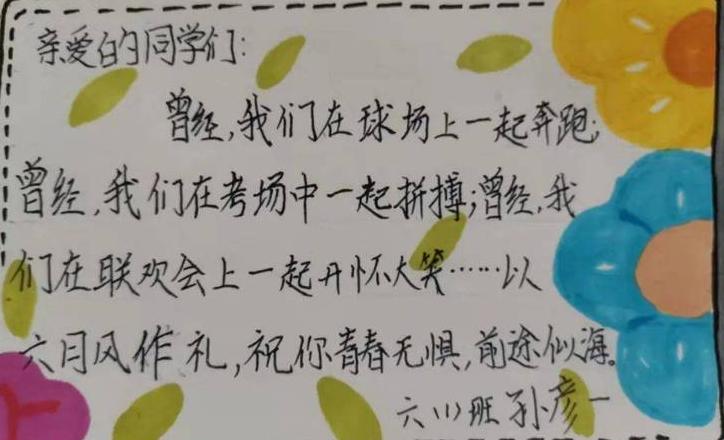 亲爱的同学们:
曾经,我们在球场上一起奔跑;
曾经,我们在考场中一起拼搏;曾经,我
们在联欢会上一起开怀大笑……以
六月风作礼,祝你青春无惧,前途似海。
六(1)班 孙彦一